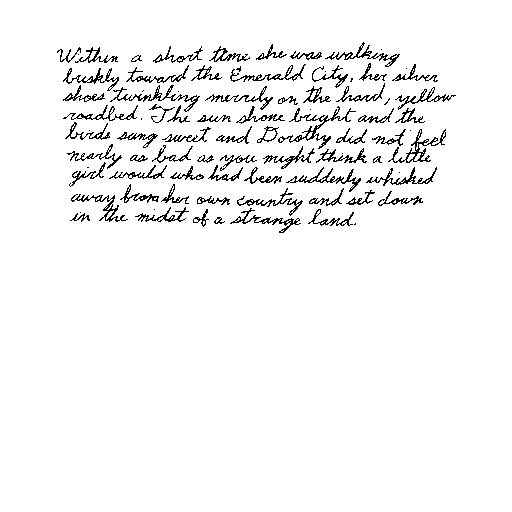 Within a short time she was walking
briskly toward the Emerald City, her silver
shoes twinkling merrily on the hard, yellow
roadbed. The sun shone bright and the
birds sang sweet and Dorothy did not feel
nearly as bad as you might think a little
girl would who had been suddenly whisked
away from her own country and set down
in the midst of a strange land.